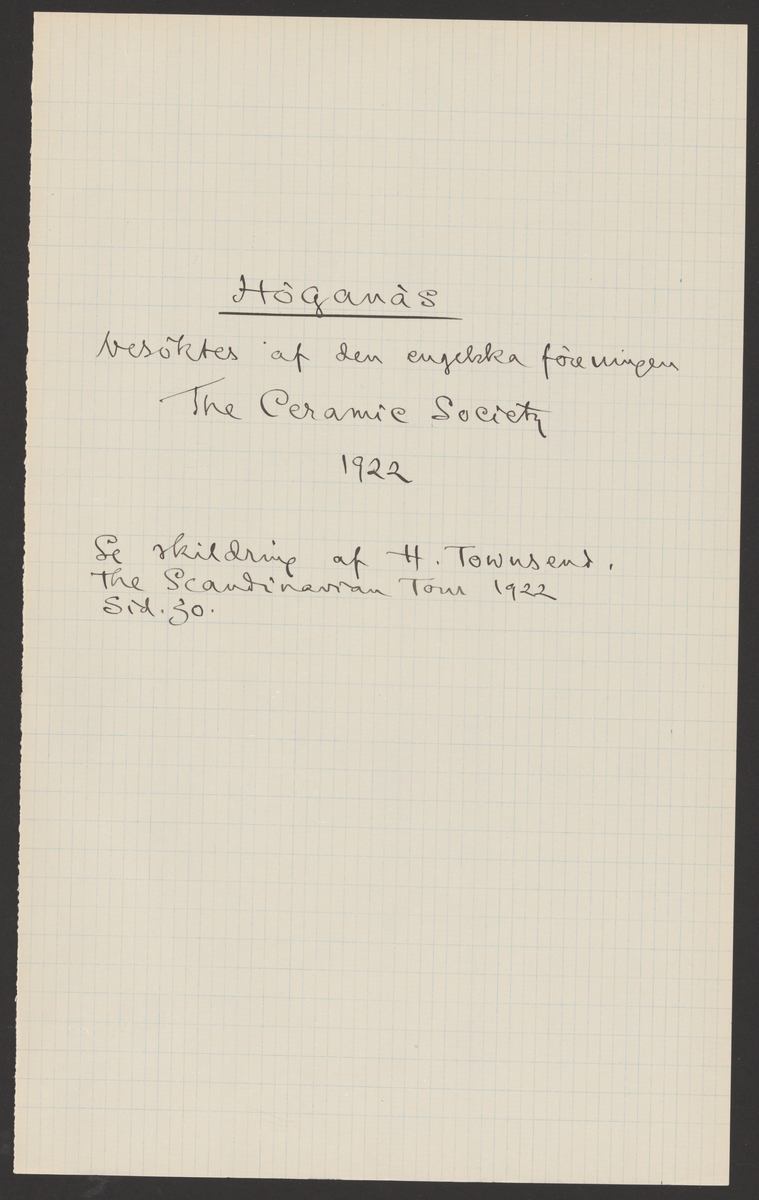 Höganäs
besöktes af den engelska föreningen
The Ceramic Society
1922
Se skildring af H. Townsend.
The Scandinavian Tour 1922
Sid. 30.